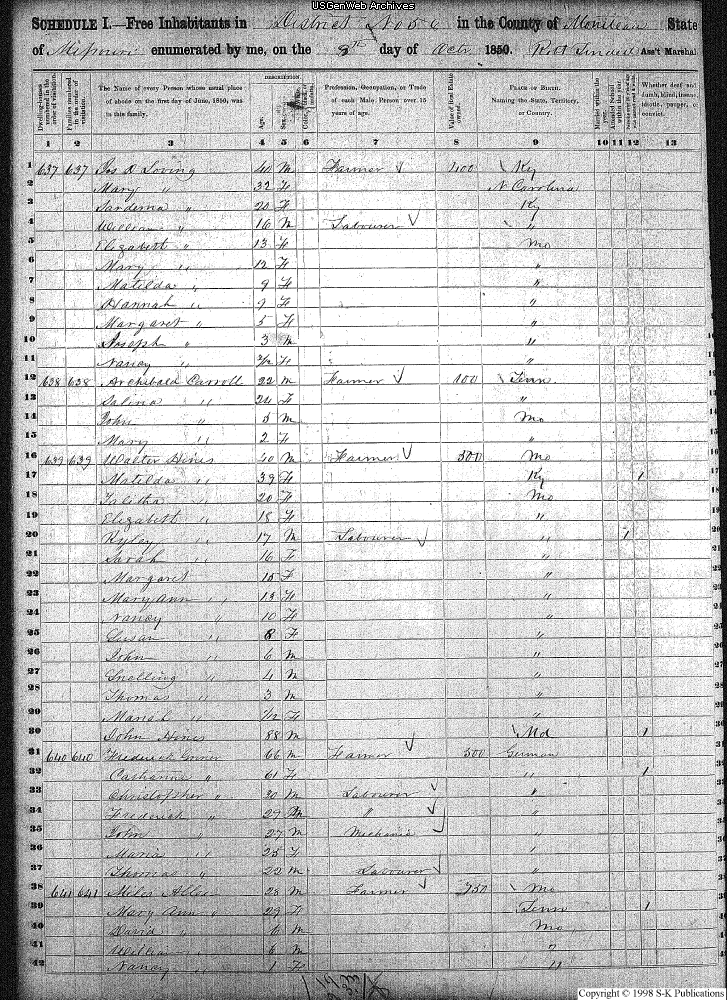 USGenWeb Archives
SCHEDULE I.—Free Inhabitants in District No 56 in the County of Moniteau State
of Missouri enumerated by me, on the 8th day of Octr 1850. Ass't Marshal
DESCRIPTION.
Dwelling-houses numbered in the order of visitation.
Families numbered in the order of visitation.
The Name of every Person whose usual place of abode on the first day of June, 1850, was in this family.
Age.
Sex.
Profession, Occupation, or Trade of each Male Person over 15 years of age.
Value of Real Estate owned.
PLACE OF BIRTH. Naming the State, Territory, or Country.
Married within the year.
Attended School within the year.
Whether deaf and dumb, blind, insane, idiotic, pauper, or convict.
1 2 3 4 5 6 7 8 9 10 11 12 13
1 637 637 Jos A Loving 40 M Farmer 100 Ky
2 Mary " 32 F N Carolina
3 Sardema " 20 F Ky
4 William " 16 M Labourer "
5 Elizabeth " 13 F Mo
6 Mary " 12 F "
7 Matilda " 9 F "
8 Hannah " 9 F "
9 Margaret " 5 F "
10 Joseph " 3 M "
11 Nancy " F "
12 638 638 Archibald Carroll 22 M Farmer 100 Tenn
13 Salina " 24 F "
14 John " M Mo
15 Mary " 2 F "
16 639 639 Walter Hines 40 M Farmer 500 Mo
17 Matilda " 39 F Ky 1
18 Talitha " 20 F Mo
19 Elizabeth " 18 F "
20 Ryley " 17 M Labourer " 1
21 Sarah " 16 F
22 Margaret 15 F "
23 Mary Ann " 13 F "
24 Nancy " 10 F "
25 Susan " 8 F "
26 John " 6 M "
27 Snelling " 4 M "
28 Thomas " 3 M "
29 Mariah " F "
30 John Hines 88 M Md 1
31 640 640 Frederick 66 M Farmer 500 German
32 Catharine " 61 F " 1
33 Christopher " 30 M Labourer "
34 Frederick " 29 M " "
35 John " 27 M Mechanic "
36 Maria " 25 F "
37 Thomas " 22 M Labourer "
38 641 641 Miles Allee 28 M Farmer 750 Mo
39 Mary Ann " 29 F Tenn 1
40 David " 6 M Mo
41 William " 6 M "
42 Nancy " 1 F "
Copyright © 1998 S-K Publications